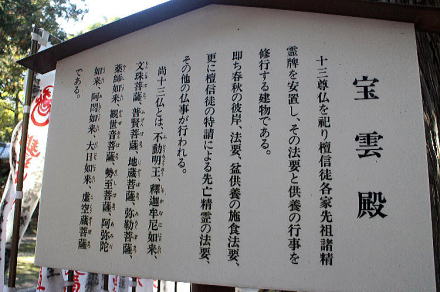 宝雲殿
十三尊仏を祀り檀信徒各家先祖諸精
霊牌を安置し、その法要と供養の行事を
修行する建物である。
即ち春秋の彼岸、法要、盆供養の施食法要、
更に檀信徒の特請による先亡精霊の法要、
その他の仏事が行われる。
尚十三仏とは、不動明王、釋迦牟尼如来、
文珠菩薩、普賢菩薩、地蔵菩薩、弥勒菩薩、
薬師如来、観世音菩薩、勢至菩薩、阿弥陀
如来、阿閦如来、大日如来、虚空蔵菩薩
である。